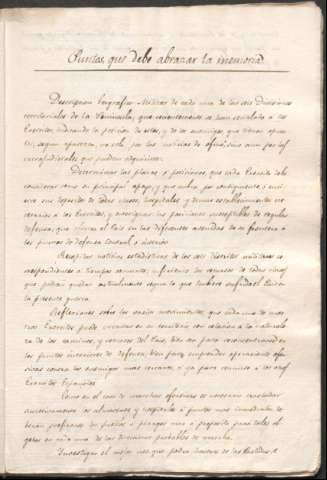 Puntos, que debe abrazar la memoria
Descripcion Geografico-Militar de cada una de las seis Divisiones
territoriales de la Peninsula, que recientemente se han señalado a los
Exercitos, indicando la posicion de estos, y de los enemigos que tienen opues-
tos, segun aparezca, no solo por las noticias de oficio, sino aun por las
que puedan adquirirse.
Determinar las plazas o posiciones, que cada Exercito debe
considerar como su principal apoyo, y que
sus depositos de todas clases, hospitales, y demas establecimientos ne-
cesarios a los Exercitos, y averiguar las posiciones susceptibles de regular
defensa, que ofrezca el Pais en las diferentes avenidas de su frontera a
los puntos de defensa central o interior.
Recopilar noticias estadisticas de los seis distritos militares co-
rrespondientes a
que podran quedar actualmente segun lo que hubiere sufrido el Pais en
la presente guerra.
Reflexiones sobre los varios movimientos, que cada uno de nues-
tros Exercitos puede executar en su territorio con relacion a la naturale-
za de los caminos, y recursos del Pais, bien sea para reconcentrarse en
los puntos interiores de defensa, bien para emprender operaciones ofen-
sivas contra los enemigos mas cercanos, o ya para reunirse a los otros
Exercitos Españoles.
Como en el caso de marchas ofensivas es necesario consolidar
sucesivamente los almacenes y hospitales a puntos mas inmediatos, de-
beran proponerse los pueblos o parages mas a proposito para tales ob-
getos en cada una de las direcciones probables de marcha.
Investigar el mejor uso, que podra hacerse de las Partidas de